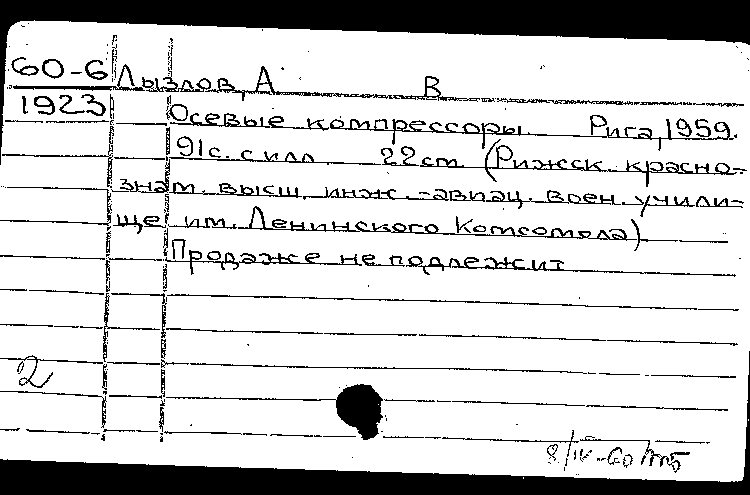 60-6 Лызлов, А В
1923 Осевые компрессоры Рига, 1959.
91с. с илл 22cm (Рижск. красно-
знам. высш. инж.-авиац. воен. учили-
ще им. Ленинского Комсомола)
Продаже не подлежит
2
8/IV-60